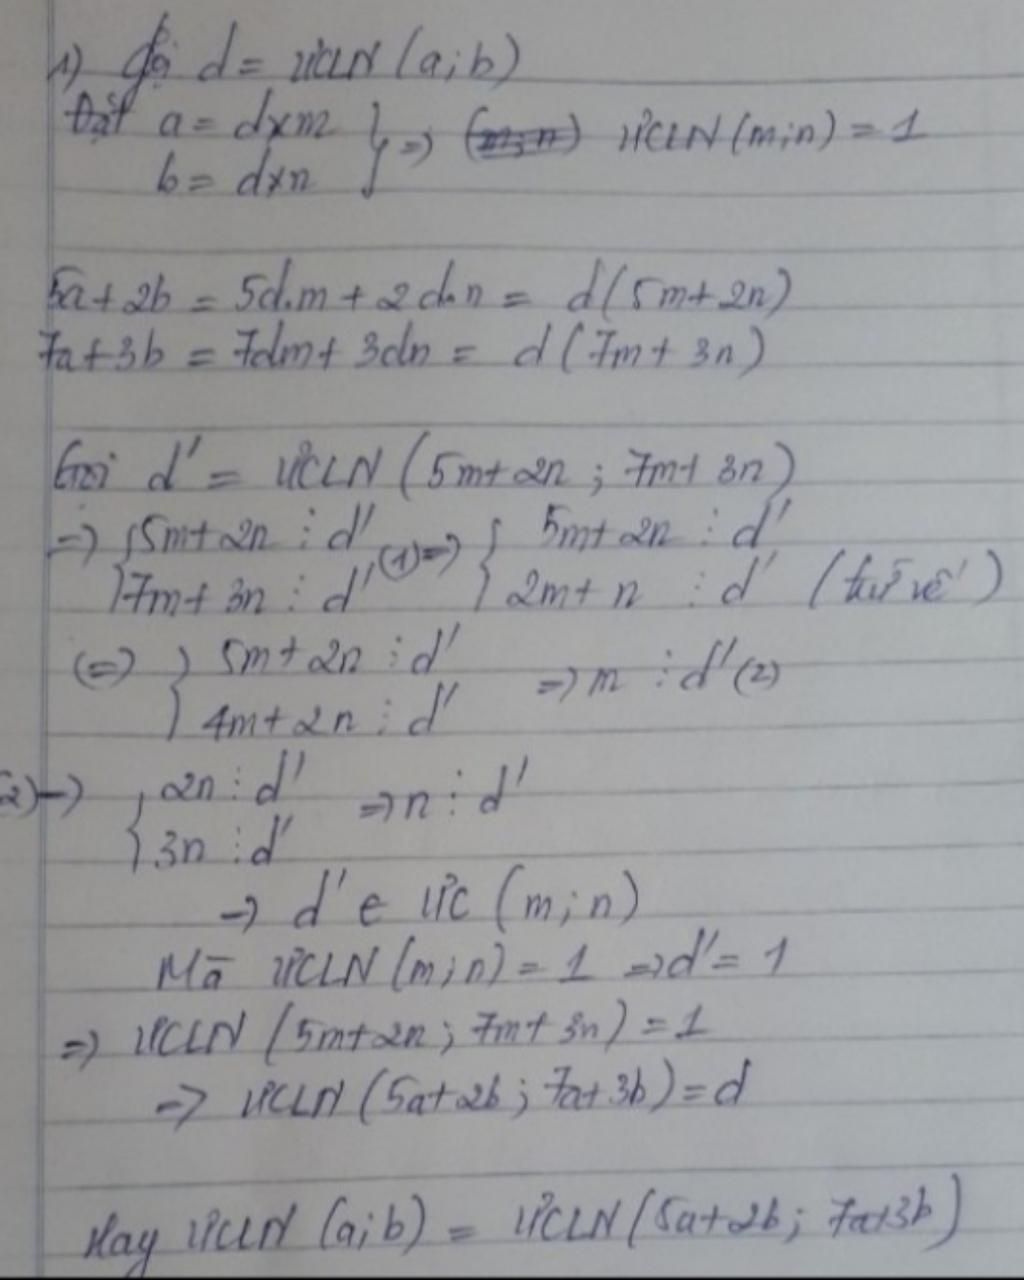 1) Gọi d = ƯCLN (a;b)
Đặt a = d×m } => ƯCLN (m;n) = 1
b = d×n
5a+2b = 5d.m + 2d.n = d(5m+2n)
7a+3b = 7dm + 3dn = d(7m+3n)
Gọi d' = ƯCLN (5m+2n ; 7m+3n)
=> { 5m+2n ⋮ d' (1) => { 5m+2n ⋮ d'
7m+3n ⋮ d' 2m+n ⋮ d' (trừ vế)
(=>) } 5m+2n ⋮ d' => m ⋮ d' (2)
4m+2n ⋮ d'
(2) => { 2n ⋮ d' => n ⋮ d'
3n ⋮ d'
=> d' ∈ ƯC (m;n)
Mà ƯCLN (m;n) = 1 => d' = 1
=> ƯCLN (5m+2n ; 7m+3n) = 1
=> ƯCLN (5a+2b ; 7a+3b) = d
Hay ƯCLN (a;b) = ƯCLN (5a+2b ; 7a+3b)